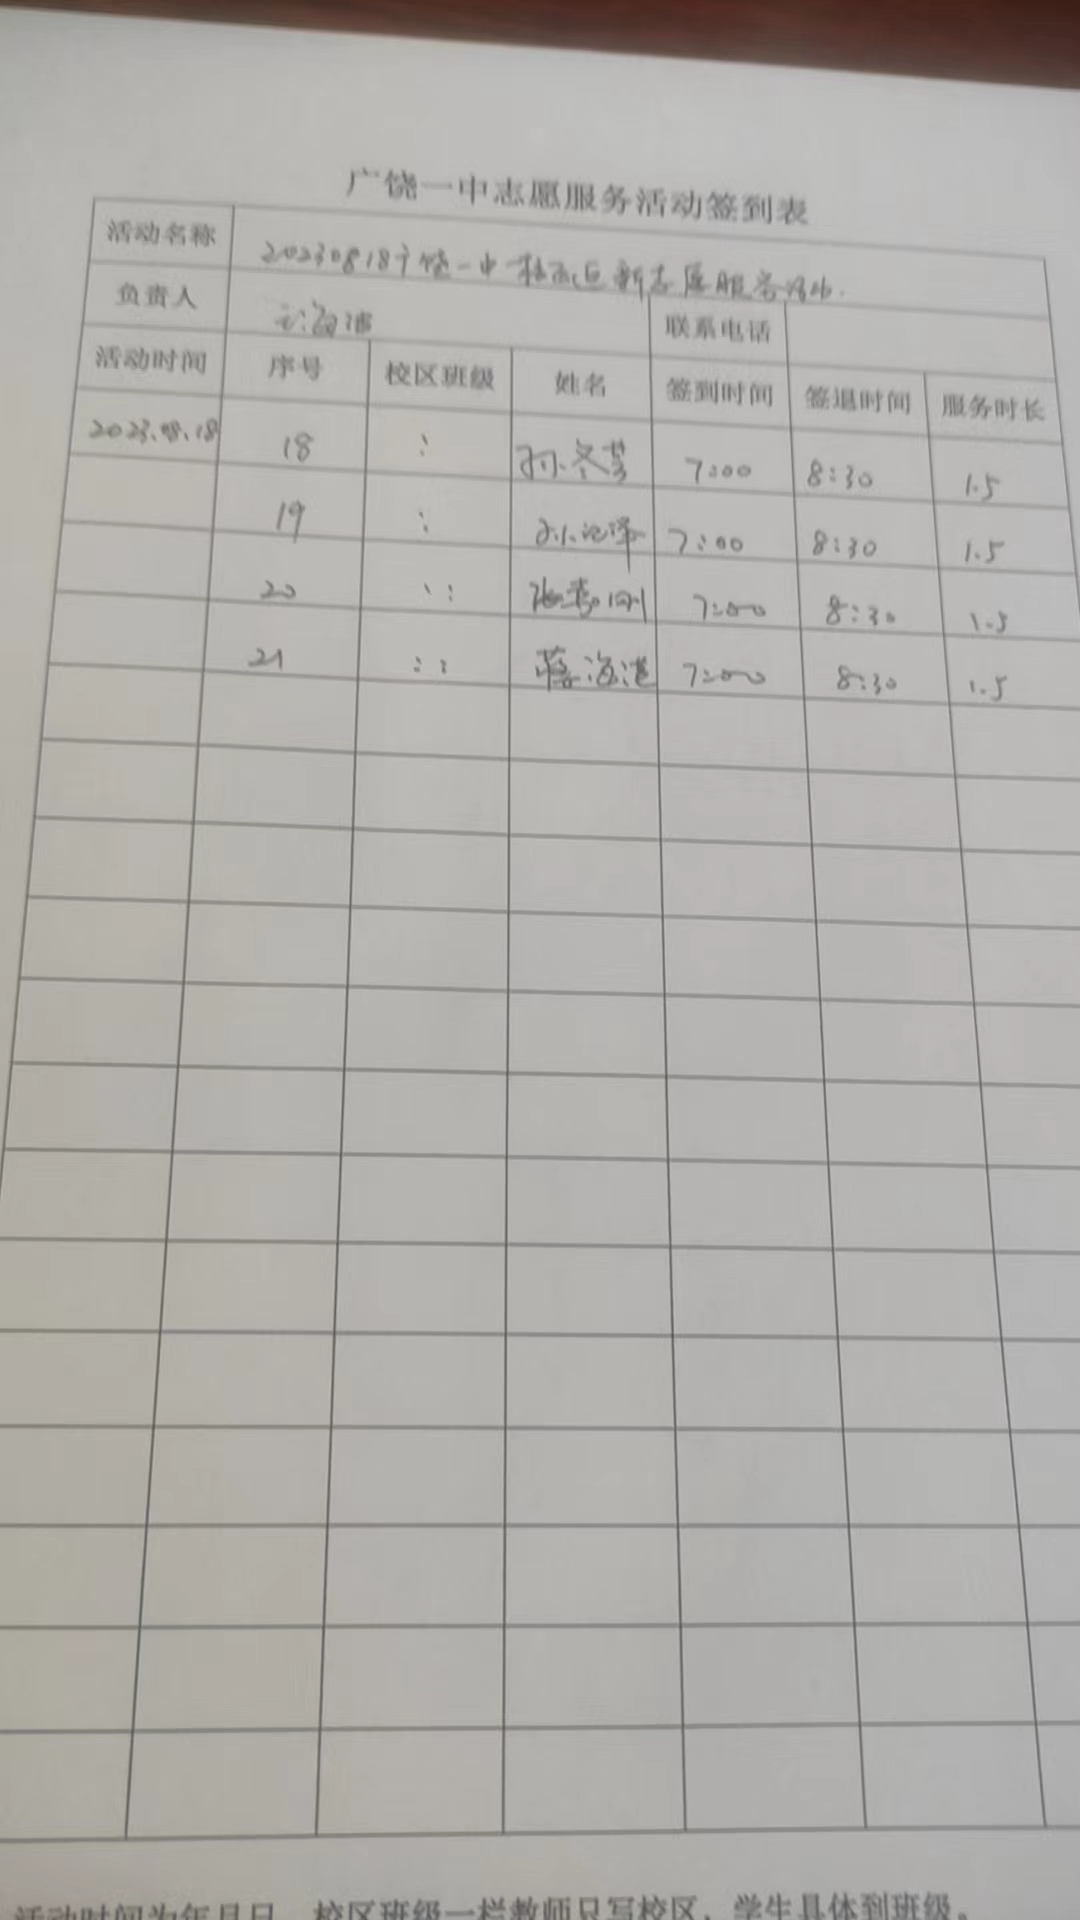 广饶一中志愿服务活动签到表
活动名称 20230818广饶一中 区新志愿服务
负责人 联系电话
活动时间 序号 校区班级 姓名 签到时间 签退时间 服务时长
2023.08.18 18 : 孙冬芸 7:00 8:30 1.5
19 : 孙 泽 7:00 8:30 1.5
20 : 7:00 8:30 1.5
21 : : 蒋海港 7:00 8:30 1.5
活动时间为年月日，校区班级一栏教师只写校区，学生具体到班级。